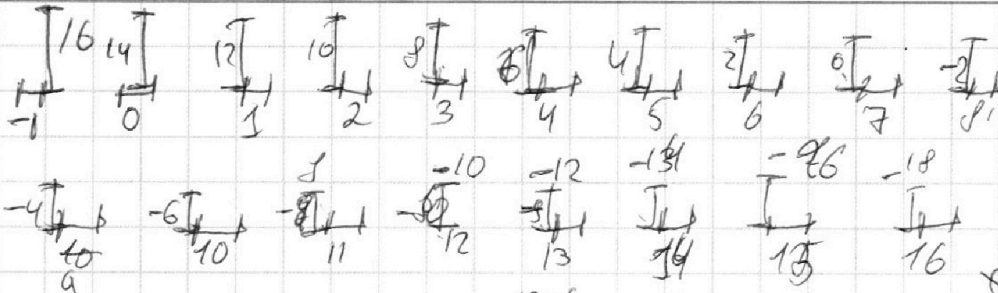 16 14 12 10 8 6 4 2 0 -2
-1 0 1 2 3 4 5 6 7 8
8 -10 -12 -14 -16 -18
-4 -6
10 11 12 13 14 15 16
9